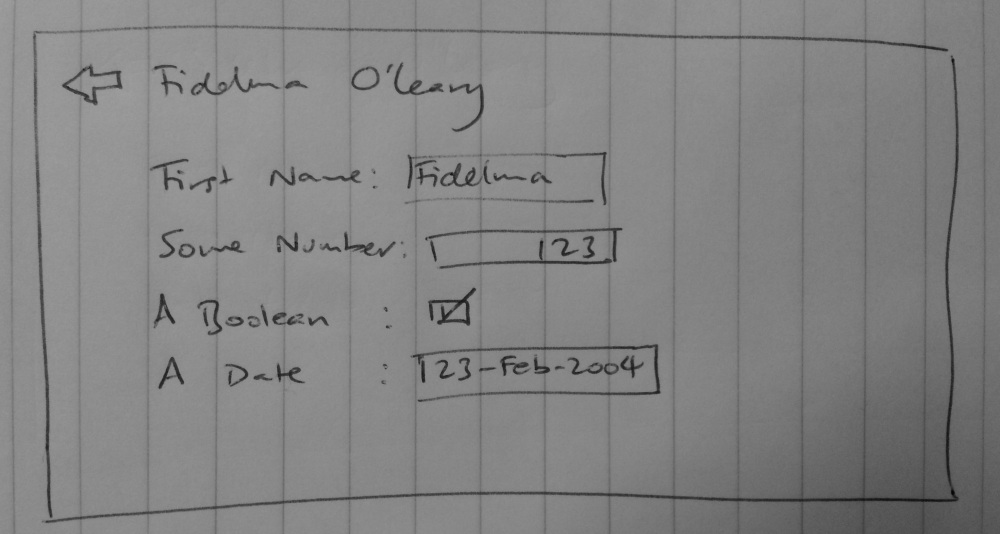 Fidelma O'Leary
First Name: Fidelma
Some Number: 123
A Boolean :
A Date : 23-Feb-2004